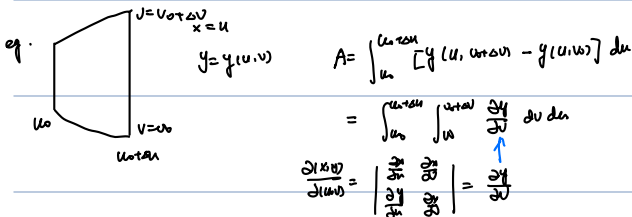 eg.
v=v₀+Δv
x=u
y=y(u,v)
u₀
v=v₀
u₀+Δu
A= ∫_{u₀}^{u₀+Δu} [y(u, v₀+Δv) - y(u,v₀)] du
= ∫_{u₀}^{u₀+Δu} ∫_{v₀}^{v₀+Δv} ∂y/∂v dv du
∂(x,y)/∂(u,v) = | ∂x/∂u ∂x/∂v ; ∂y/∂u ∂y/∂v | = ∂y/∂v